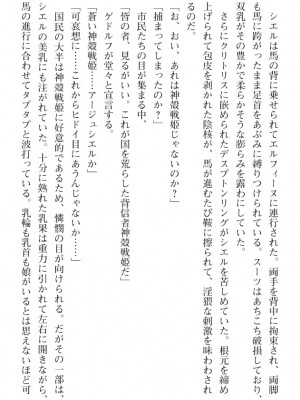 シエルは馬の背に乗せられてエルフィーヌに連行された。両手を背中に拘束され、両脚
も馬に跨がったまま足首をあぶみに縛りつけられている。スーツはあちこち破損しており、
双乳がその豊かで柔らかそうな膨らみを露わにしていた。
さらにクリトリスに嵌められたデスプトンリングがシエルを苦しめていた。根元を締め
上げられて包皮を剥かれた陰核が、馬が進むたび鞍に擦られて、淫猥な刺激を味わわされ
るのだ。
「お、おい、あれは神殻戦姫じゃないのか？」
「捕まってしまったのか？」
市民たちの目が集まる中、
ゲドルフが堂々と宣言する。
「皆の者、見るがいい。これが国を荒らした背信者神殻戦姫だ」
「蒼い神殻戦姫……アージュシエルか」
「可哀想に……これからヒドイ目にあうんじゃないか……」
国民の大半は神殻戦姫に好意的であるため、憐憫の目が向けられる。だがその一部は、
シエルの美乳にも注がれていた。十分に熟れた乳果は重力に引かれて左右に開きながら、
馬の進行に合わせてタプタプと波打っている。乳輪も乳首も娘がいるとは思えないほど可